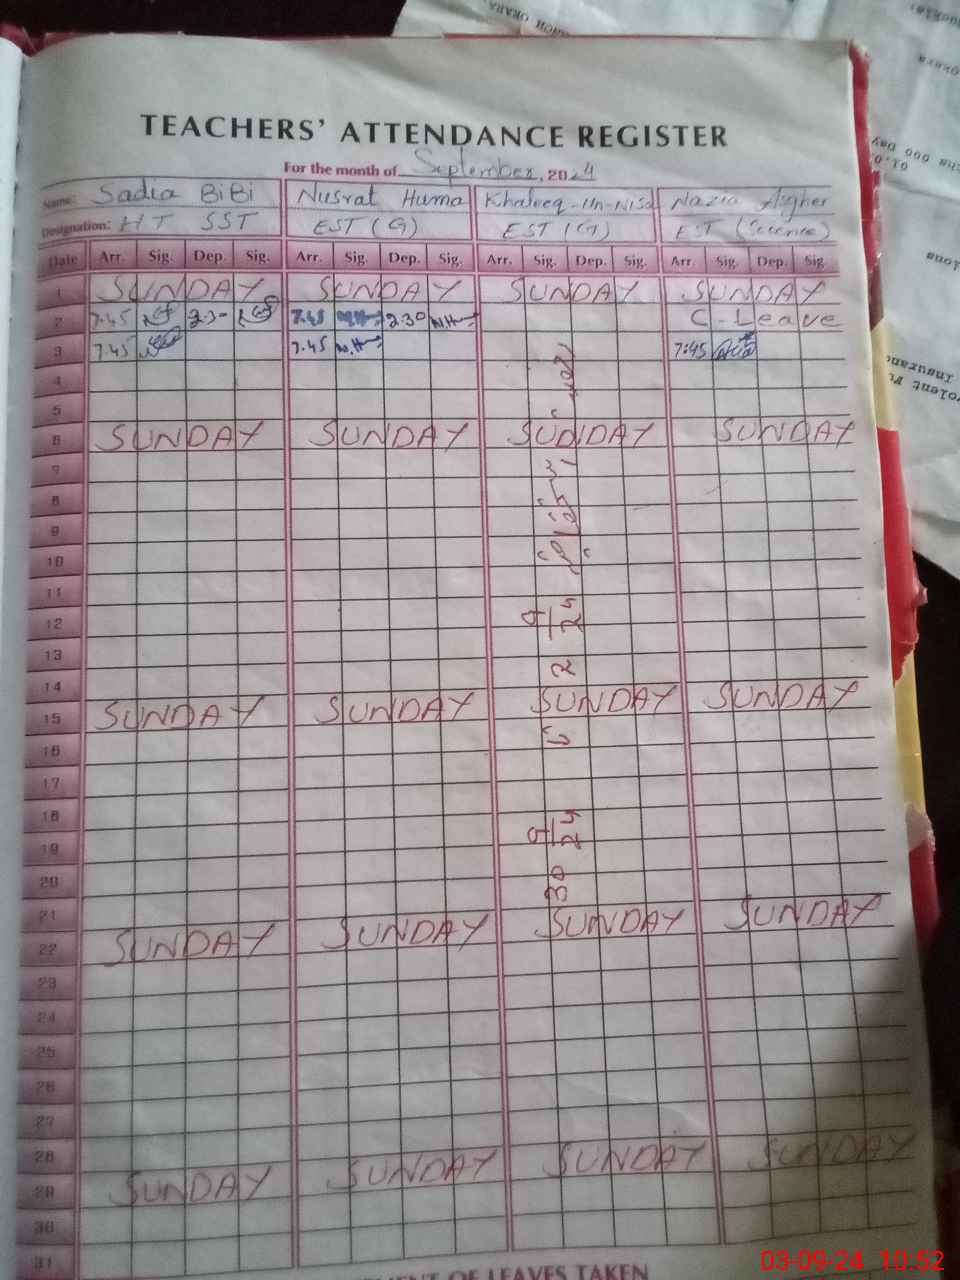 TEACHERS' ATTENDANCE REGISTER
For the month of September, 2024
Name: Sadia BiBi Nusrat Huma Khaleeq-Un-Nisa Nazia Asgher
Designation: HT SST EST (G) EST (G) EST (Science)
Date Arr. Sig. Dep. Sig. Arr. Sig. Dep. Sig. Arr. Sig. Dep. Sig. Arr. Sig. Dep. Sig
1 SUNDAY SUNDAY SUNDAY SUNDAY
2 7.45 2.30 7.45 N.H 2.30 N.H C-Leave
3 7.45 7.45 N.H 7:45
4
5
6 SUNDAY SUNDAY SUNDAY SUNDAY
7
8
9
10
11
12
13
14
15 SUNDAY SUNDAY SUNDAY SUNDAY
16
17
18
19
20
21
22 SUNDAY SUNDAY SUNDAY SUNDAY
23
24
25
26
27
28
29 SUNDAY SUNDAY SUNDAY SUNDAY
30
31
30 9/24
2 9/24
OF LEAVES TAKEN
03-09-24 10:52